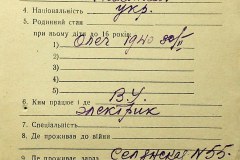 4. Національність укр.
5. Родинний стан
при ньому діти до 16 років
1) Олег 1940
2)
3)
4)
5)
6. Ким працює і де В.У.
электрик
7. Спеціяльність
8. Де проживав до війни
9. Де проживає зараз Селянская № 55